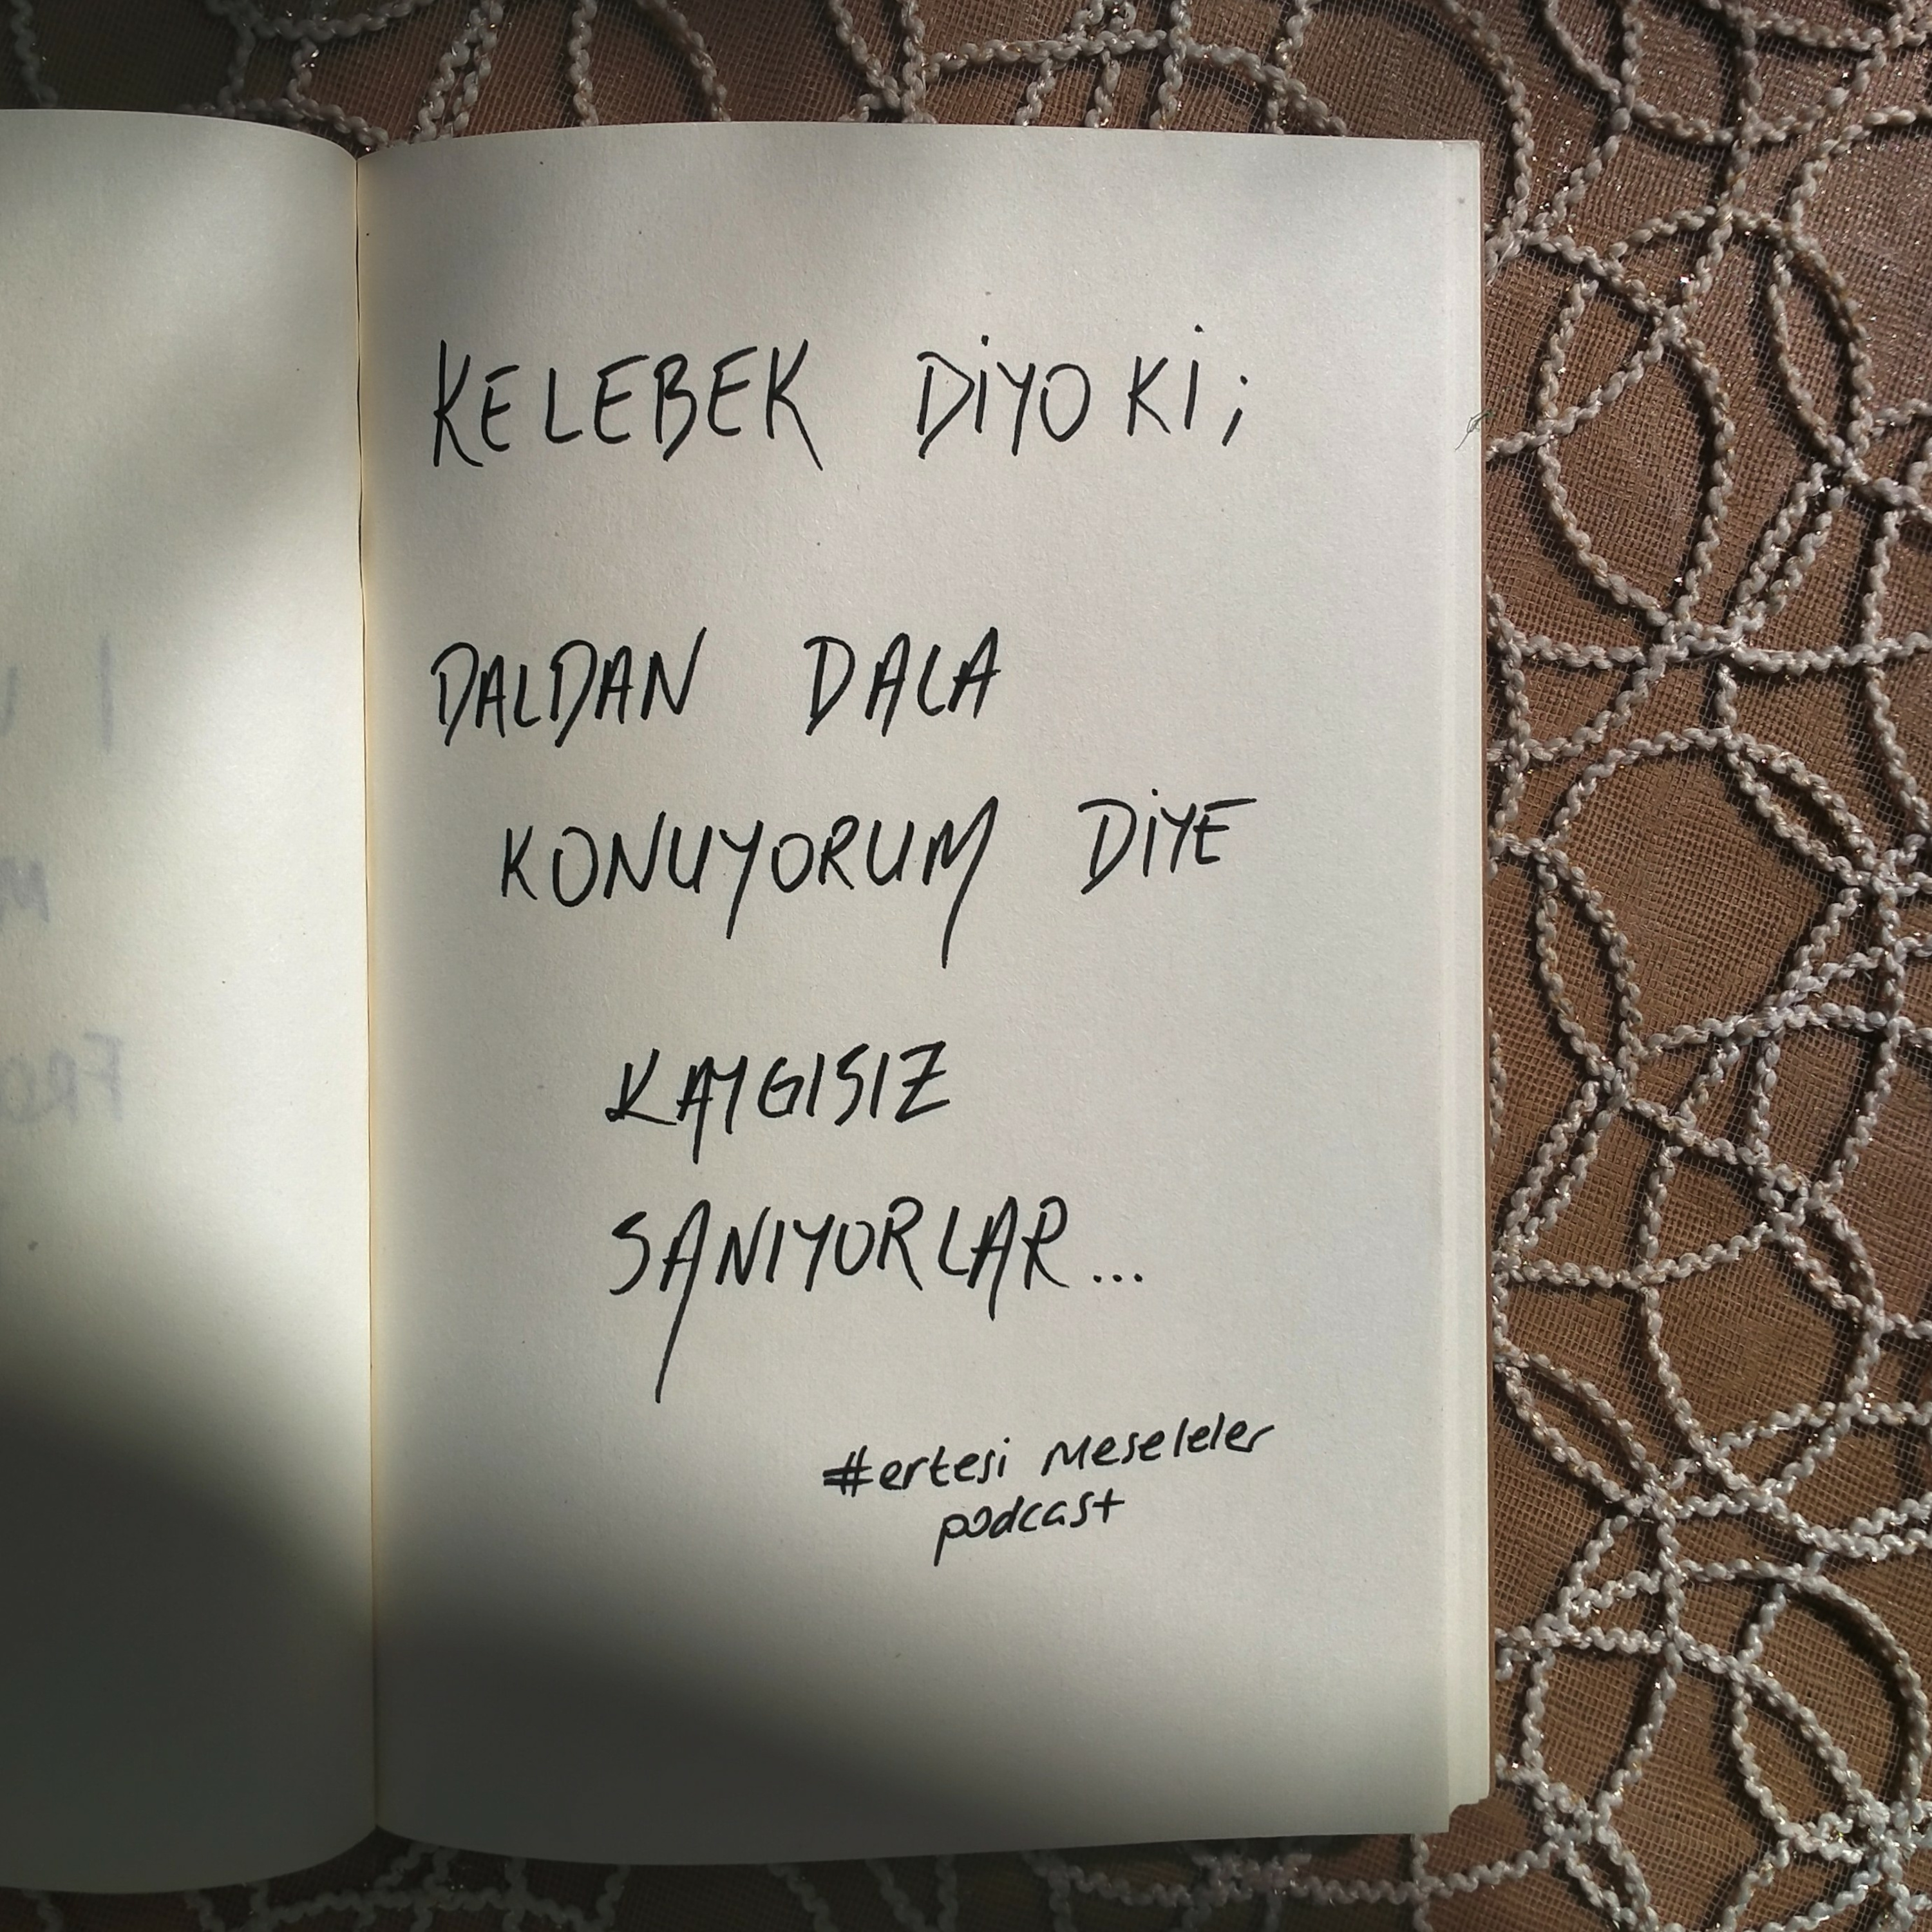 KELEBEK DİYO Kİ;
DALDAN DALA
KONUYORUM DİYE
KAYGISIZ
SANIYORLAR...
#ertesi meseleler
podcast